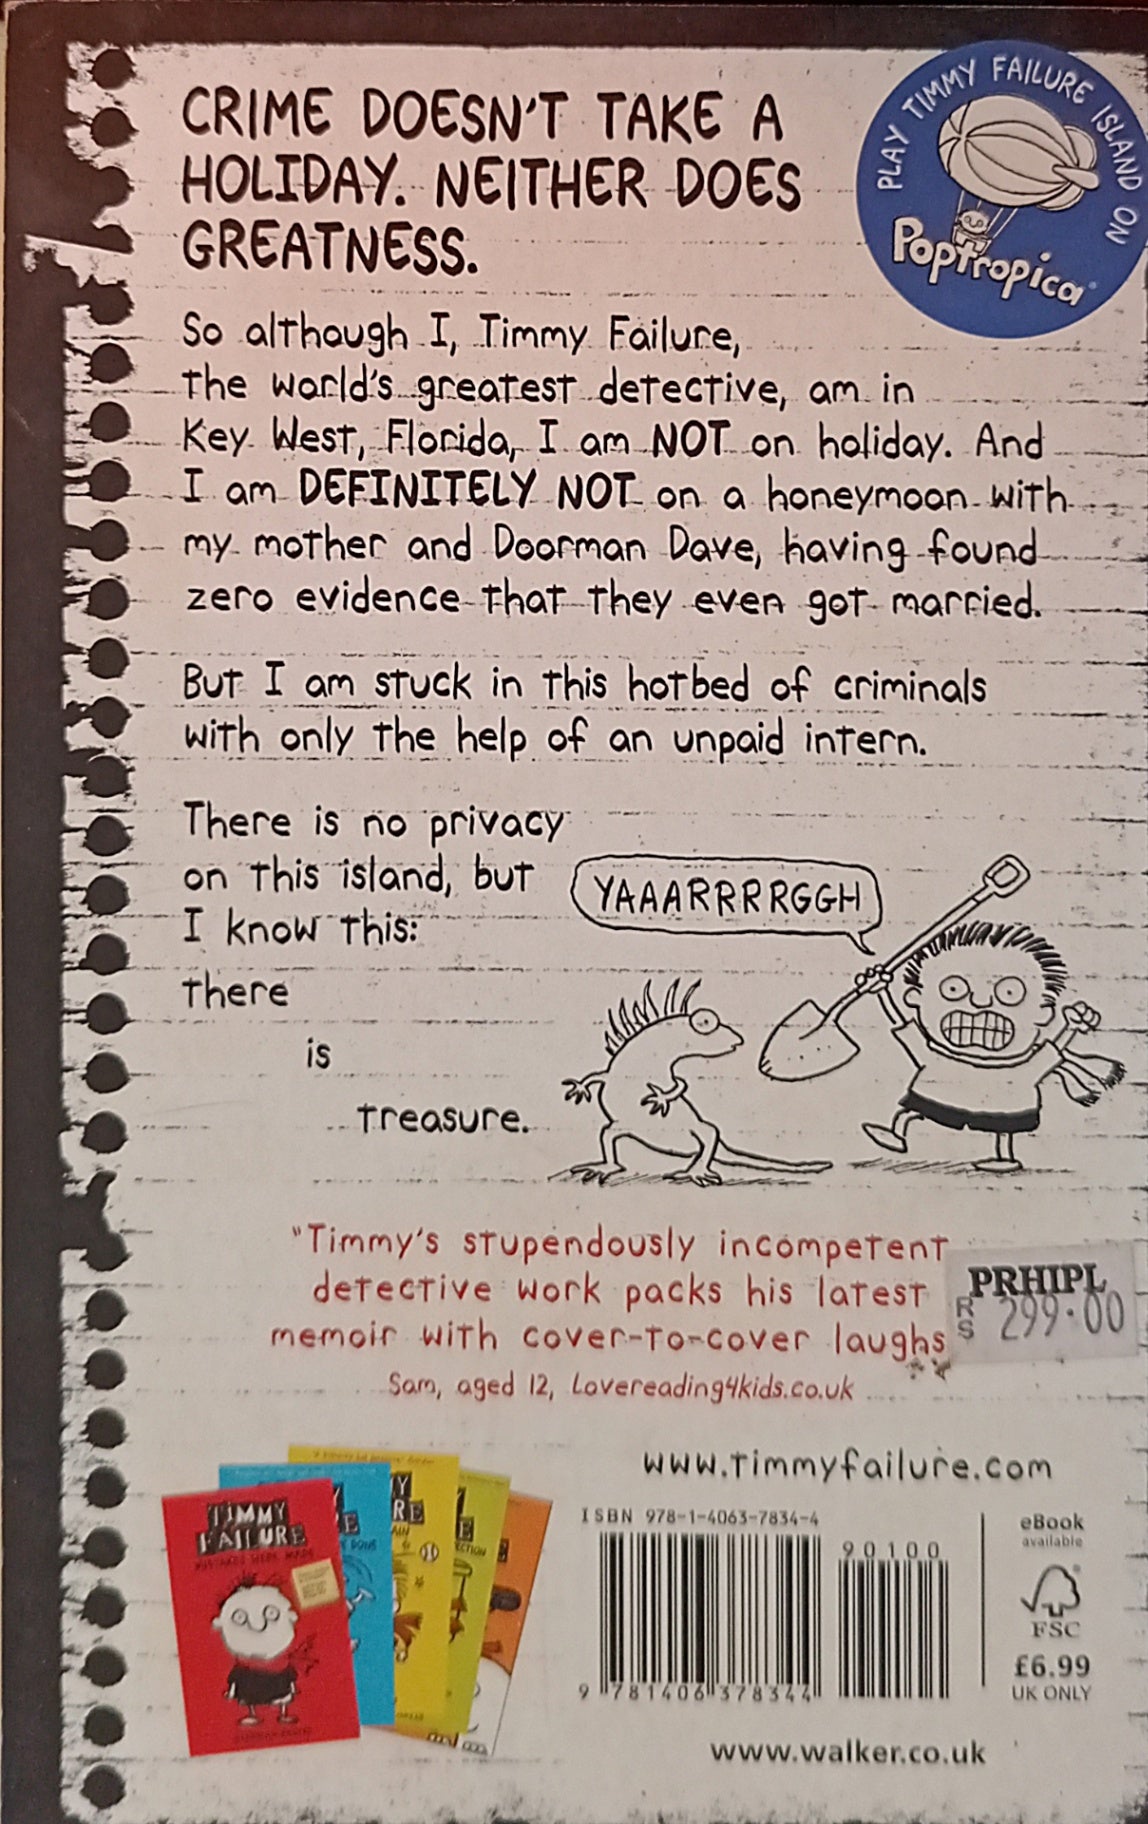 PLAY TIMMY FAILURE ISLAND ON
Poptropica
CRIME DOESN'T TAKE A
HOLIDAY. NEITHER DOES
GREATNESS.
So although I, Timmy Failure,
the world's greatest detective, am in
Key West, Florida, I am NOT on holiday. And
I am DEFINITELY NOT on a honeymoon with
my mother and Doorman Dave, having found
zero evidence that they even got married.
But I am stuck in this hotbed of criminals
with only the help of an unpaid intern.
There is no privacy
on this island, but
I know this:
there
is
treasure.
YAAARRRRGGH
"Timmy's stupendously incompetent
detective work packs his latest
memoir with cover-to-cover laughs
Sam, aged 12, Lovereading4kids.co.uk
PRHIPL
RS 299.00
www.timmyfailure.com
TIMMY
FAILURE
MISTAKES WERE MADE
ISBN 978-1-4063-7834-4
90100
9 781406 378344
eBook
available
FSC
£6.99
UK ONLY
www.walker.co.uk